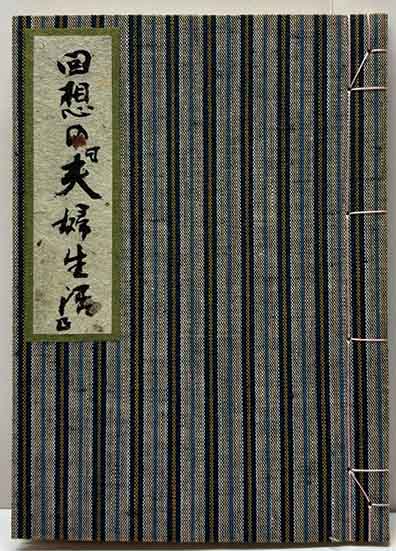 回想の「夫婦生活」